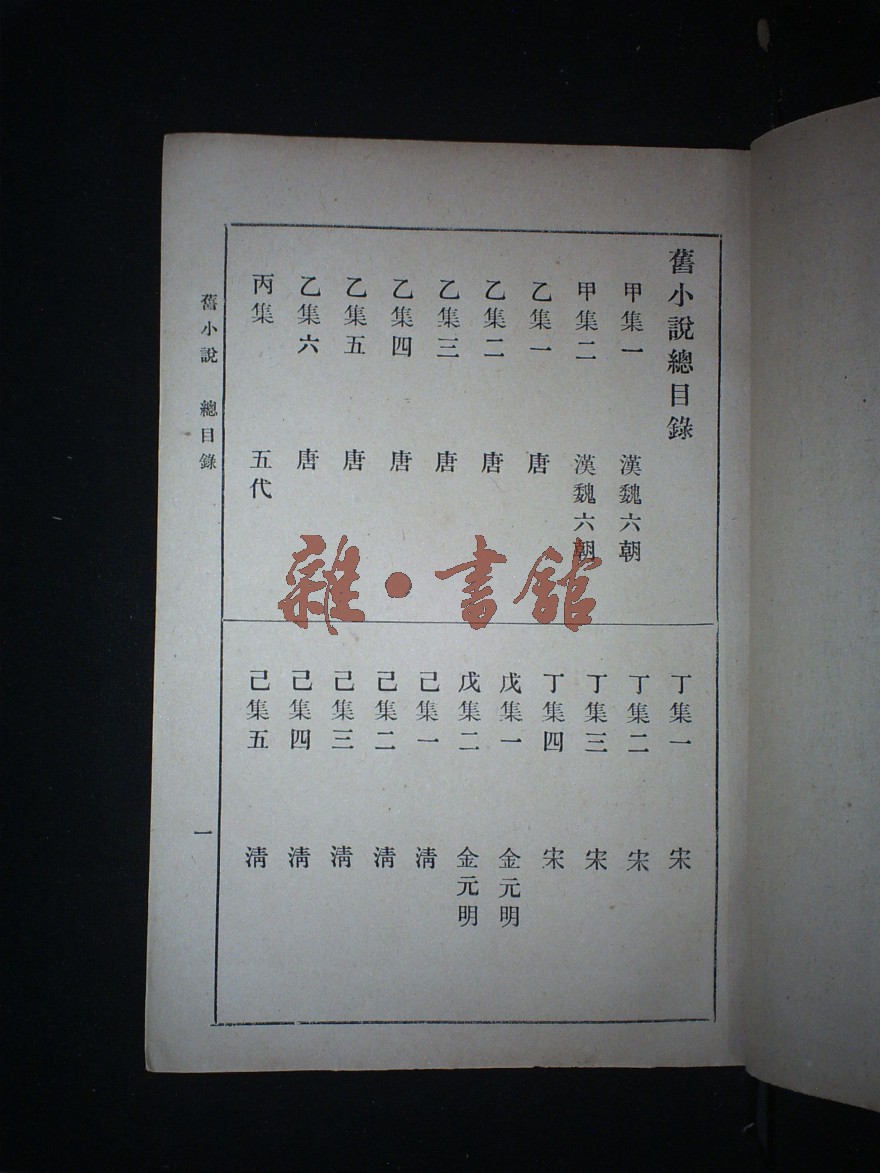 舊小說總目錄
甲集一 漢魏六朝
甲集二 漢魏六朝
乙集一 唐
乙集二 唐
乙集三 唐
乙集四 唐
乙集五 唐
乙集六 唐
丙集 五代
丁集一 宋
丁集二 宋
丁集三 宋
丁集四 宋
戊集一 金元明
戊集二 金元明
己集一 清
己集二 清
己集三 清
己集四 清
己集五 清
舊小說 總目錄 一
雜·書館